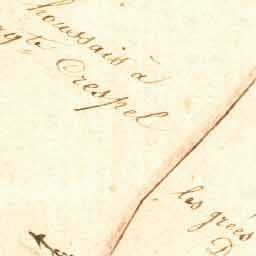 houssais à
Crespel
les grées
D